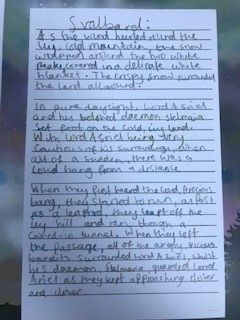 Svalbard:
As the wind howled round the
icy, cold mountain, the snow
wrapped around the two white
peaks covered in a delicate white
blanket. The crispy snow surrounded
the land all around.
In pure daylight, Lord Asriel
and his beloved daemon
set foot on the cold, icy land.
With Lord Asriel being very
cautious of his surroundings, when
all of a sudden, there was a
loud bang form a distance.
When they first heard the loud, ferocious
bang, they started to run, as fast
as a leapord, they leapt off the
icy hill and ran through a
caved-in tunnel. When they left
the passage, all of the angry, vicious
bandits surrounded Lord Asriel, whilst
his daemon, guarded Lord
Asriel as they kept approaching closer
and closer.